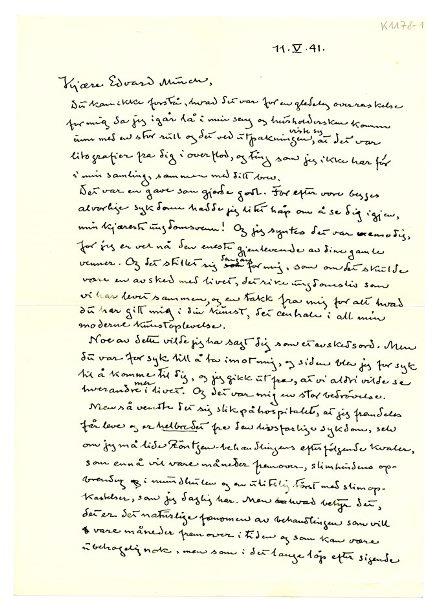 K1178-1
11.V.41.
Kjære Edvard Munch,
Du kan ikke forstå, hvad det var for en gledelig overraskelse
for mig da jeg igår lå i min seng og husholdersken kom
inn med en stor rull og det ved utpakningen, viste sig, at det var
litografier fra dig i overflod, og ting som jeg ikke har før
i min samling, sammen med ditt brev.
Det var en gave som gjorde godt. For efter vore begges
alvorlige sykdomme hadde jeg litet håp om å se dig igjen,
min kjæreste ungdomsvenn! Og jeg syntes det var vemodig,
for jeg er vel nå den eneste gjenlevende av dine gamle
venner. Og det stillet sig for mig, som om det skulde
være en avsked med livet, det rike ungdomsliv som
vi har levet sammen, og en takk fra mig for alt hvad
du har gitt mig i din kunst, det centrale i all min
moderne kunstoplevelse.
Noe av dette vilde jeg ha sagt dig som et avskedsord. Men
du var for syk till å ta imot mig, og siden blev jeg for syk
til å komme til dig, og jeg gikk ut fra, at vi aldri vilde se
hverandre mer i livet. Og det var mig en stor bedrøvelse.
Men så vendte det sig slik på hospitalet, at jeg fremdeles
får leve og er helbredet fra den livsfarlige sykdom, selv
om jeg må lide Röntgen-behandlingens efterfølgende kvaler,
som ennå vil vare måneder fremover, slimhindens op-
brending i mundhulen og en ulidelig tørst med slimop-
kastelser, som jeg daglig har. Men hvad betyr det,
det er det naturlige fenomen av behandlingen som vill
vare måneder fremover i tiden og som kan være
ubehagelig nok, men som i det lange løp efter sigende